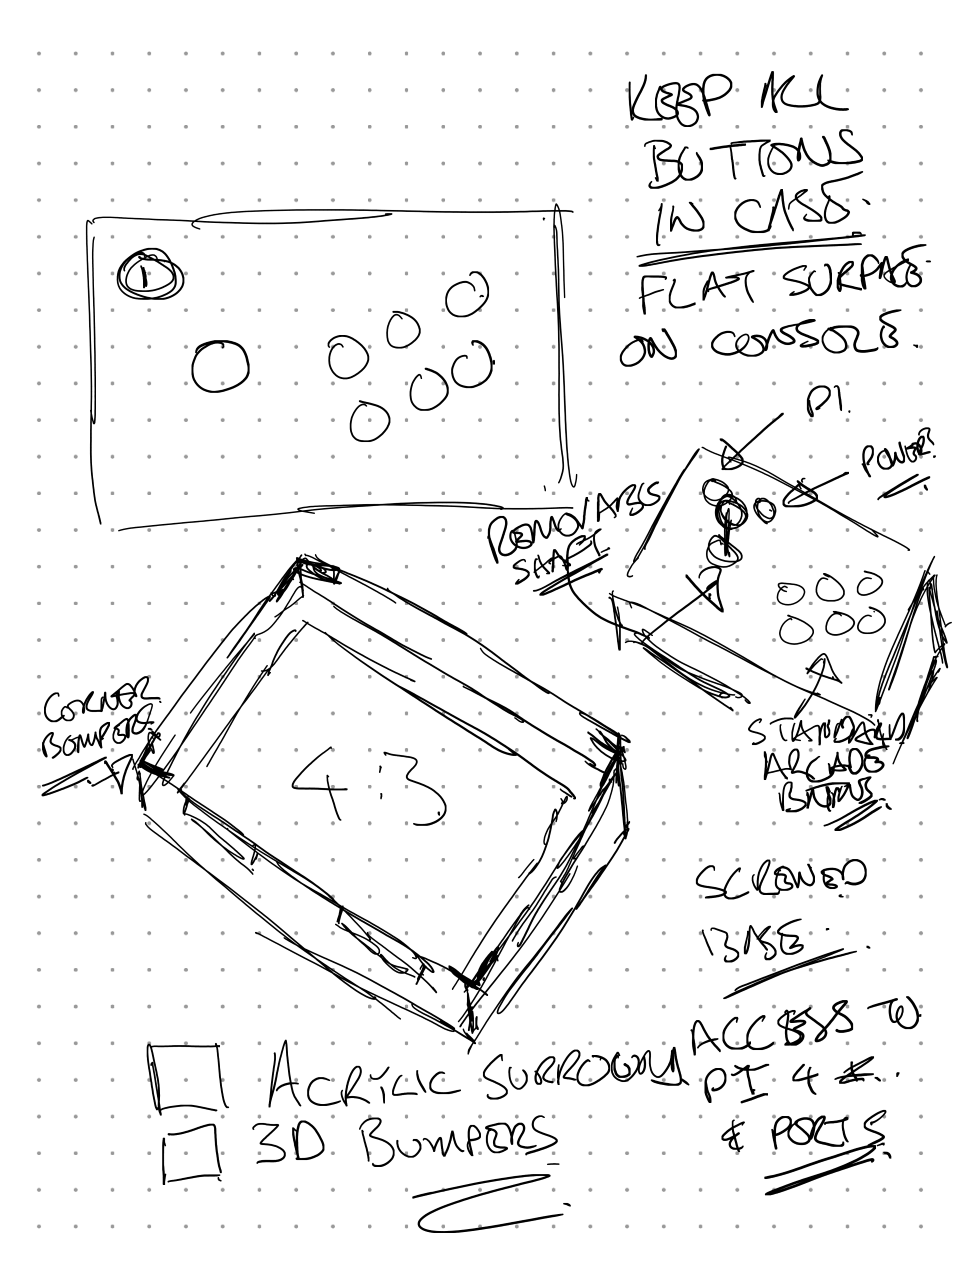 KEEP ALL
BUTTONS
IN CASE.
FLAT SURFACE
ON CONSOLE.
1
PI.
POWER?
REMOVABLE
SHAFT
STANDARD
ARCADE
BUTTONS.
CORNER
BUMPERS.
4:3
SCREWED
BASE.
ACCESS TO
PI 4
& PORTS.
ACRYLIC SURROUND
3D BUMPERS